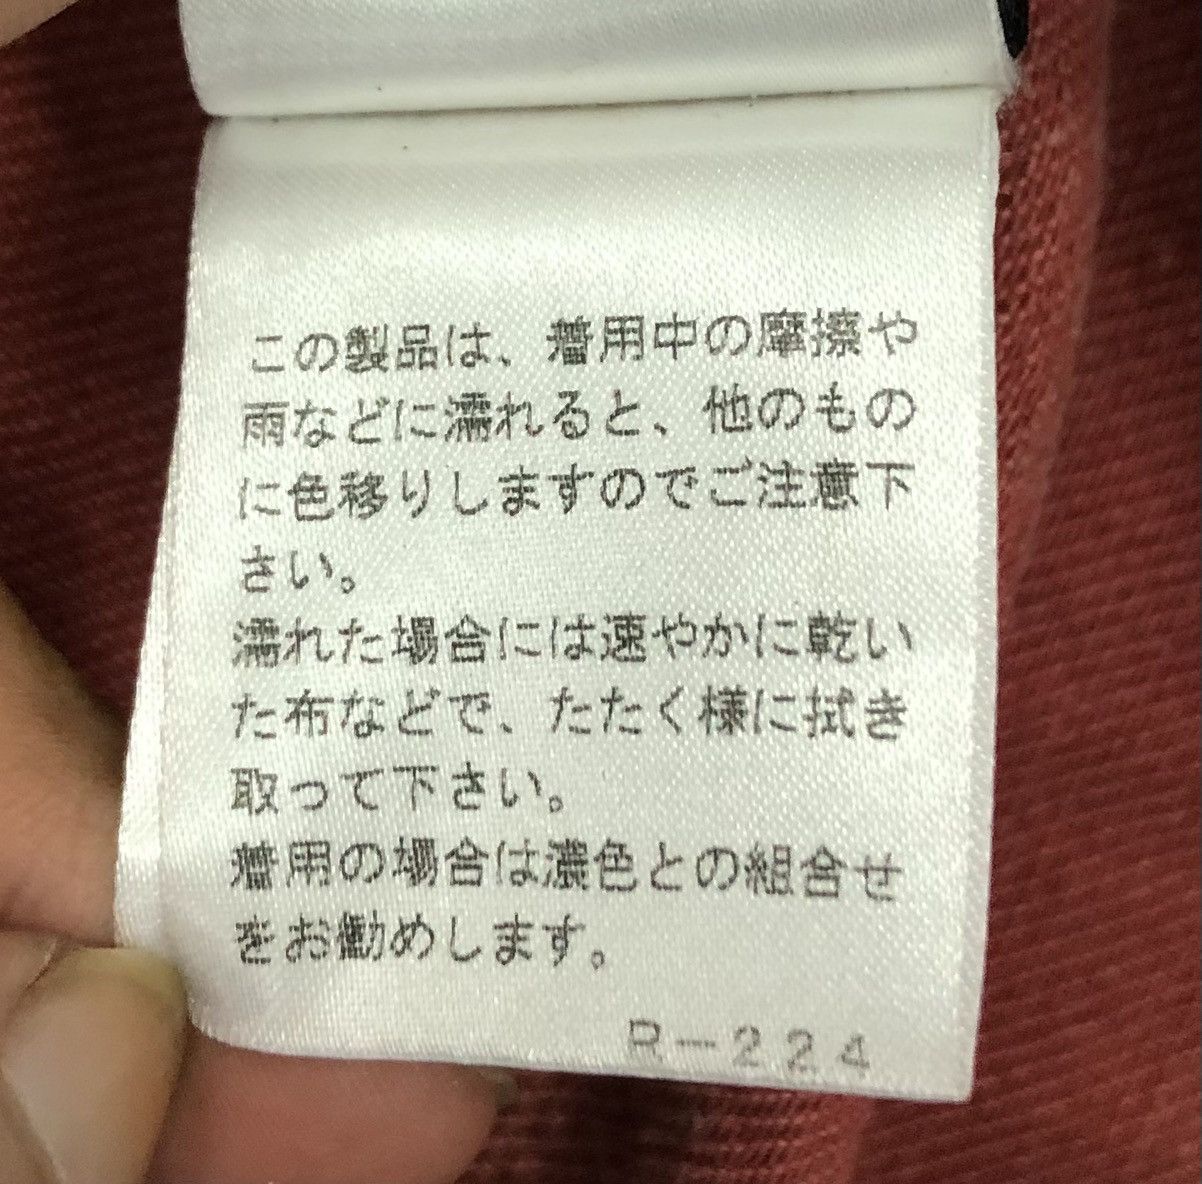 この製品は、着用中の摩擦や
雨などに濡れると、他のもの
に色移りしますのでご注意下
さい。
濡れた場合には速やかに乾い
た布などで、たたく様に拭き
取って下さい。
着用の場合は濃色との組合せ
をお勧めします。
R-224